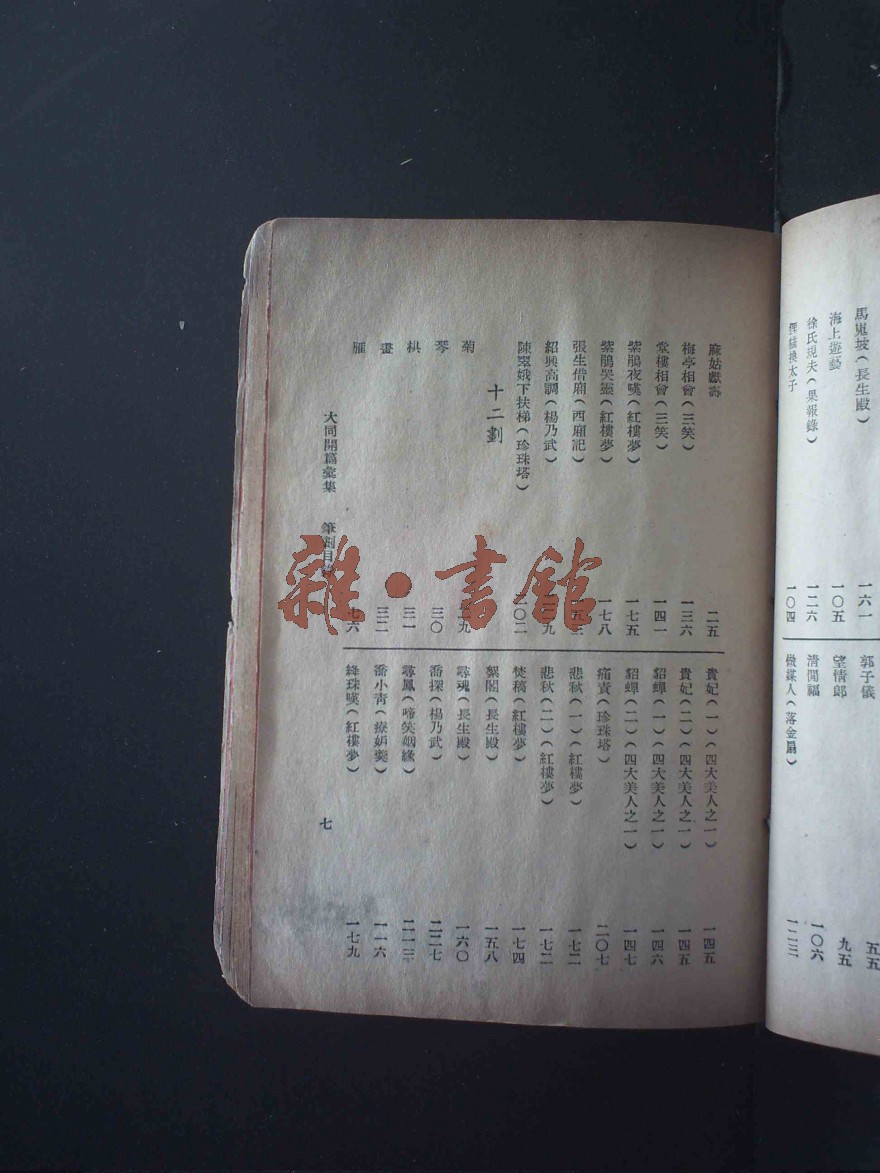 馬嵬坡(長生殿) 一六一
海上遊藝 一〇五
徐氏規夫(果報錄) 一二六
狸貓換太子 一〇四
郭子儀 五五
望情郎 九五
清閒福 一〇六
做媒人(落金扇) 一二三
麻姑獻壽 二五
梅亭相會(三笑) 一三六
堂樓相會(三笑) 一四一
紫鵑夜嘆(紅樓夢) 一七五
紫鵑哭靈(紅樓夢) 一七八
張生借廂(西廂記)
紹興高調(楊乃武)
陳翠娥下扶梯(珍珠塔) 一〇二
十二劃
菊
琴 三〇
棋 三一
畫 三二
雁
貴妃(一)(四大美人之一) 一四五
貴妃(二)(四大美人之一) 一四五
貂蟬(一)(四大美人之一) 一四六
貂蟬(二)(四大美人之一) 一四七
痛責(珍珠塔) 二〇七
悲秋(一)(紅樓夢) 一七二
悲秋(二)(紅樓夢) 一七二
焚稿(紅樓夢) 一七四
絮閣(長生殿) 一五八
尋魂(長生殿) 一六〇
喬探(楊乃武) 二二七
尋鳳(啼笑姻緣) 二一三
喬小青(療妒羹) 一一六
絳珠嘆(紅樓夢) 一七九
大同開篇彙集 筆劃目
七
雜·書館